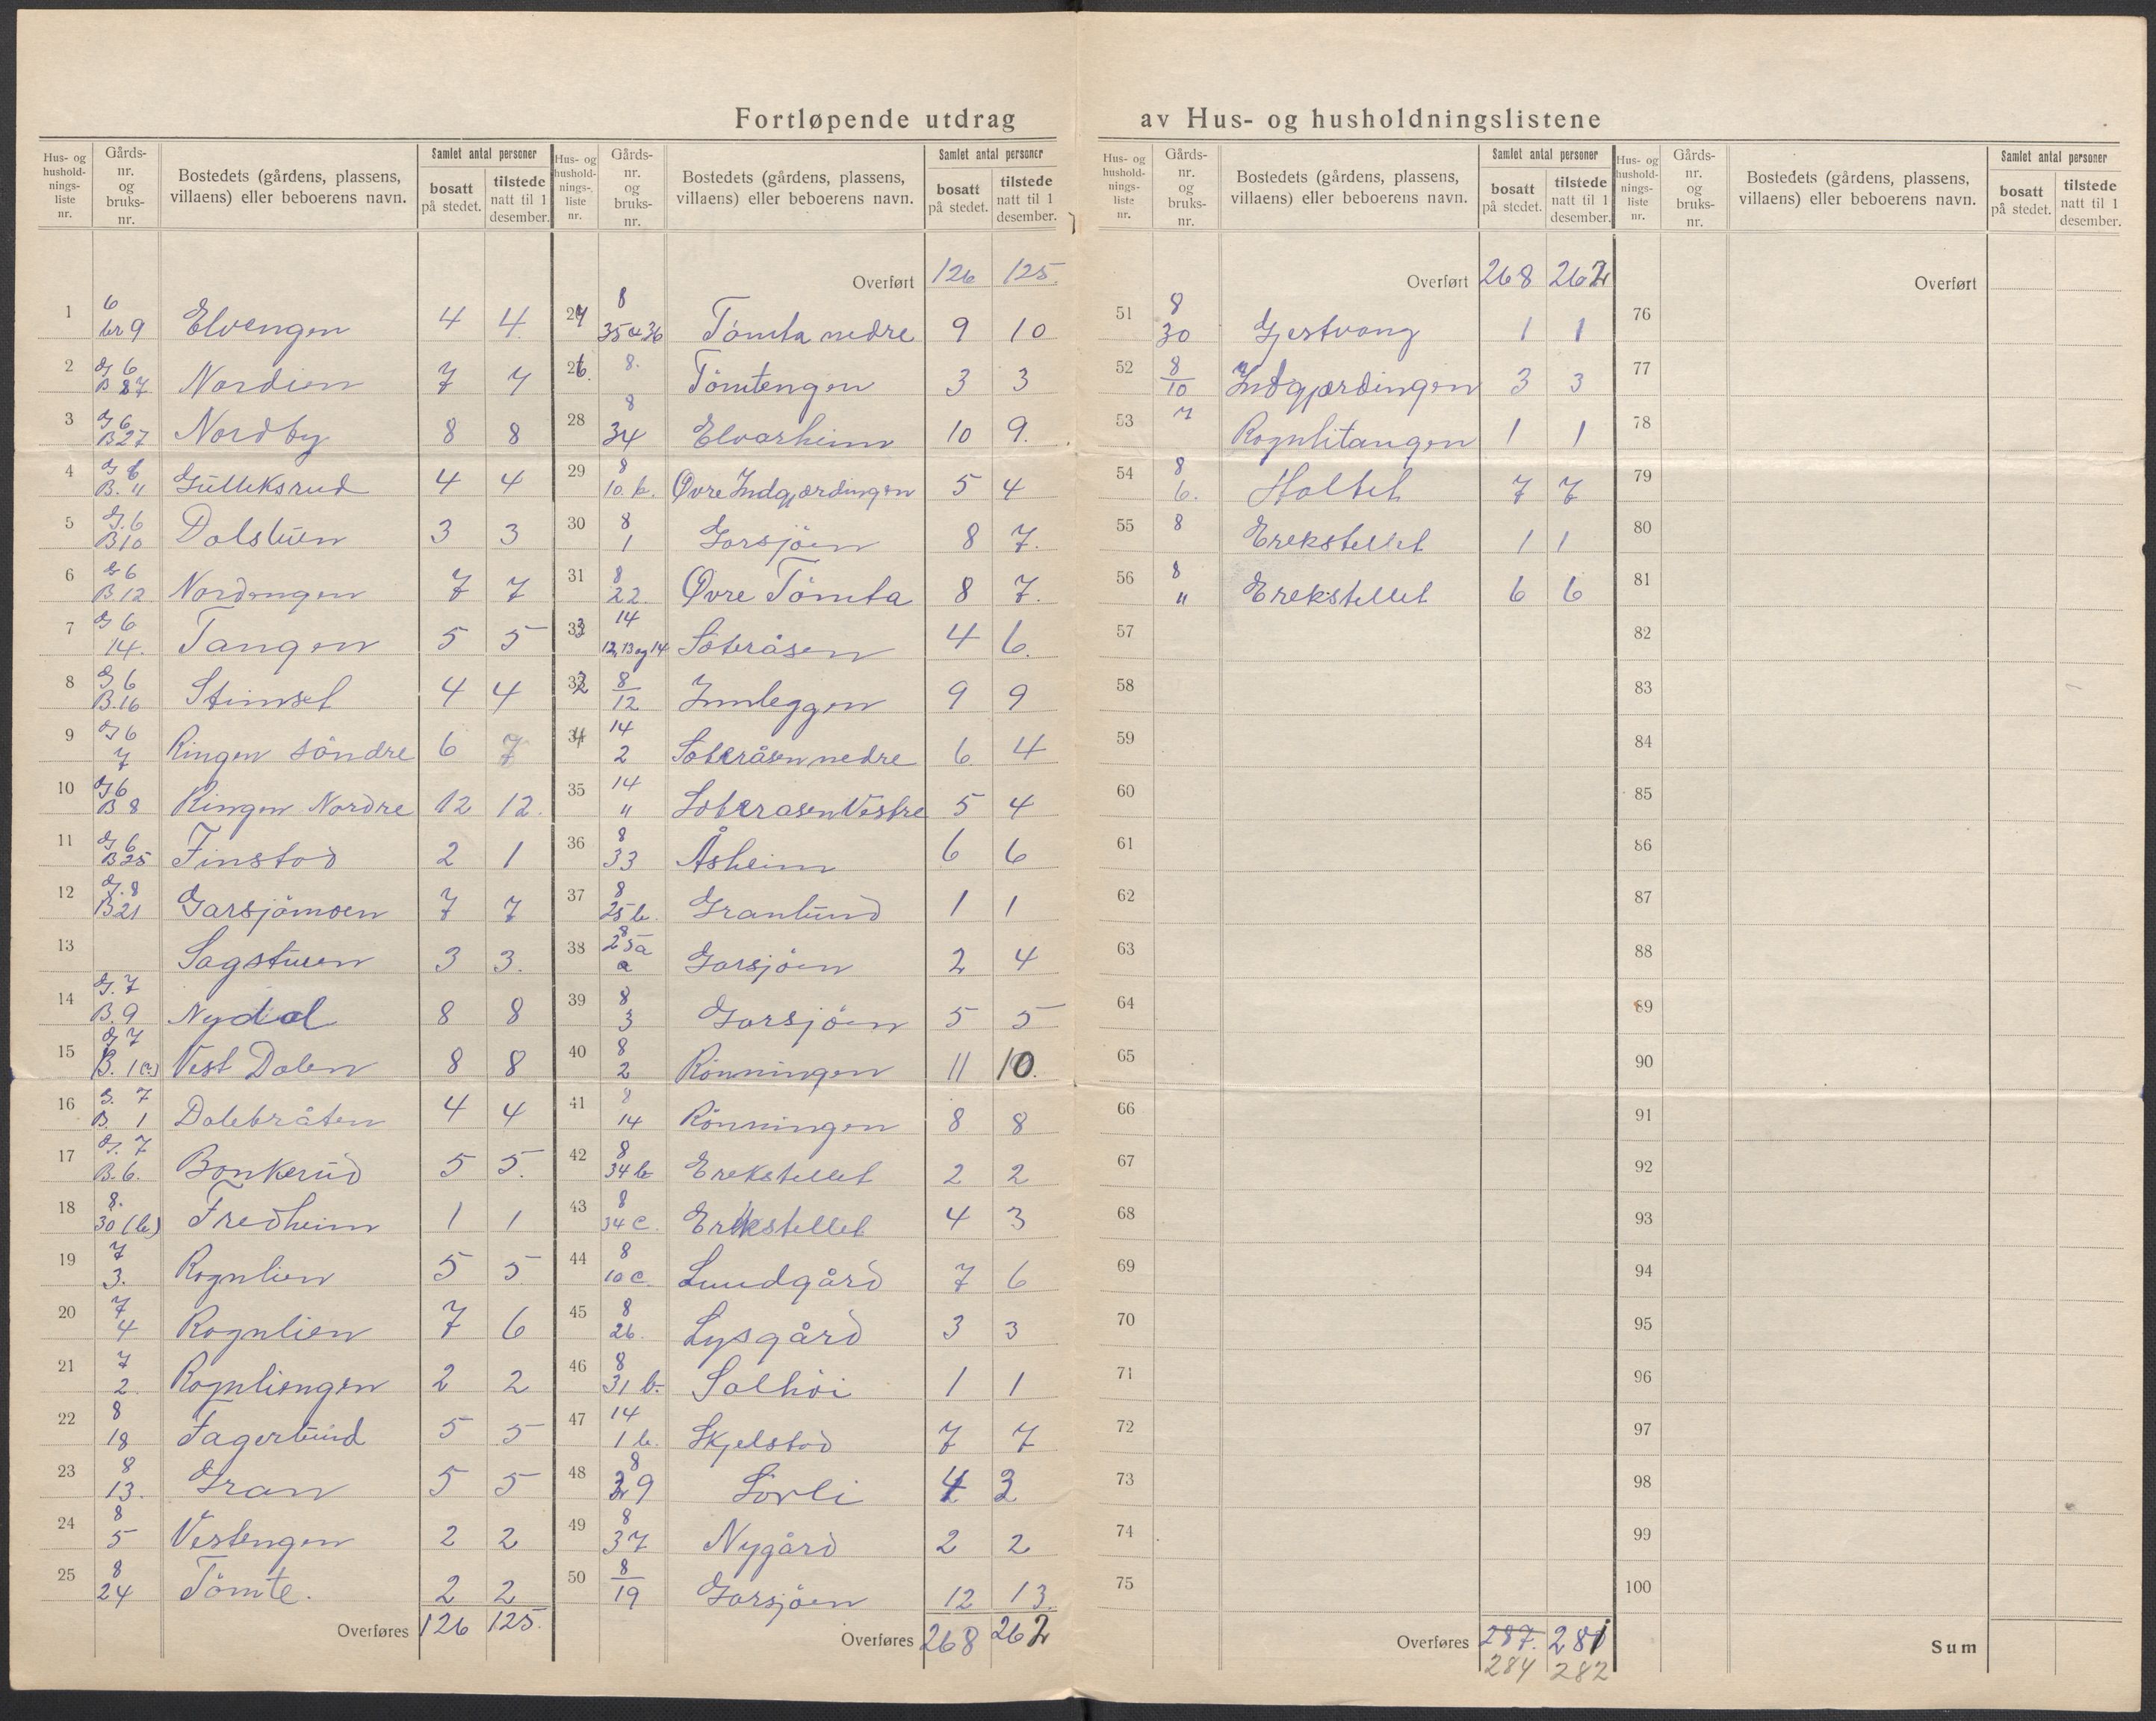 Fortløpende utdrag av Hus- og husholdningslistene
Hus- og husholdnings-liste nr. | Gårds-nr. og bruks-nr. | Bostedets (gårdens, plassens, villaens) eller beboerens navn. | Samlet antal personer | bosatt på stedet. | tilstede natt til 1 desember.
1 | 6 br 9 | Elvengen | 4 | 4
2 | G 6 B 87 | Nordien | 7 | 7
3 | G 6 B 27 | Nordby | 8 | 8
4 | G 6 B. 11 | Gulleksrud | 4 | 4
5 | G. 6 B 10 | Dalstuen | 3 | 3
6 | G 6 B 12 | Nordengen | 7 | 7
7 | G 6 14. | Tangen | 5 | 5
8 | G 6 B. 16 | Stimsel | 4 | 4
9 | G 6 7 | Ringen söndre | 6 | 7
10 | G 6 B 8 | Ringen Nordre | 12 | 12.
11 | G 6 B 25 | Finstad | 2 | 1
12 | G. 8 B 21 | Garsjömoen | 7 | 7
13 | Sagstuen | 3 | 3.
14 | G. 7 B. 9 | Nydal | 8 | 8
15 | G 7 B. 1 (a) | Vest Dalen | 8 | 8
16 | G. 7 B. 1 | Dalebråten | 4 | 4
17 | G. 7 B. 6. | Bonkerud | 5 | 5.
18 | 8. 30 (b) | Fredheim | 1 | 1
19 | 7 3. | Rognlien | 5 | 5
20 | 7 4 | Rognlien | 7 | 6
21 | 7 2. | Rognliengen | 2 | 2
22 | 8 18 | Fagerlund | 5 | 5
23 | 8 13. | Gran | 5 | 5
24 | 8 5 | Vestengen | 2 | 2
25 | 8 24 | Tömte. | 2 | 2
Overføres | 126 | 125.
Hus- og husholdnings-liste nr. | Gårds-nr. og bruks-nr. | Bostedets (gårdens, plassens, villaens) eller beboerens navn. | Samlet antal personer | bosatt på stedet. | tilstede natt til 1 desember.
Overført | 126 | 125.
27 | 8 35 & 36 | Tömta nedre | 9 | 10
26. | 8. | Tömtengen | 3 | 3
28 | 8 34 | Elvarheim | 10 | 9.
29 | 8 10. b. | Øvre Indgjærdingen | 5 | 4
30 | 8 1 | Garsjöen | 8 | 7.
31 | 8 22. | Øvre Tömta | 8 | 7.
33 | 14 12, 13 og 14 | Soteråsen | 4 | 6.
32 | 8 12 | Innleggen | 9 | 9
34 | 14 2 | Soteråsen nedre | 6 | 4
35 | 14 " | Soterasen Vestre | 5 | 4
36 | 8 33 | Åsheim | 6 | 6
37 | 8 25 b. | Granlund | 1 | 1
38 | 8 25a a | Garsjöen | 2 | 4
39 | 8 3 | Garsjöen | 5 | 5
40 | 8 2 | Rönningen | 11 | 10.
41 | 8 14 | Rönningen | 8 | 8
42 | 8 34 b | Erekstellet | 2 | 2
43 | 8 34 c. | Erekstellet | 4 | 3
44 | 8 10 c. | Lundgård | 7 | 6
45 | 8 26. | Lysgård | 3 | 3
46 | 8 31 b. | Solhöi | 1 | 1
47 | 14 1 b. | Skjelstad | 7 | 7
48 | 8 29 | Sörli | 4 | 3
49 | 8 37 | Nygård | 2 | 2
50 | 8 19 | Garsjöen | 12 | 13.
Overføres | 268 | 262
Hus- og husholdnings-liste nr. | Gårds-nr. og bruks-nr. | Bostedets (gårdens, plassens, villaens) eller beboerens navn. | Samlet antal personer | bosatt på stedet. | tilstede natt til 1 desember.
Overført | 268 | 262
51 | 8 30 | Gjestvang | 1 | 1
52 | 8 10 | Indgjærdingen | 3 | 3
53 | 7 | Rognlitangen | 1 | 1
54 | 8 6. | Holtet | 7 | 7
55 | 8 | Erekstellet | 1 | 1
56 | 8 " | Erekstellet | 6 | 6
57
58
59
60
61
62
63
64
65
66
67
68
69
70
71
72
73
74
75
Overføres | 287. | 281
284 | 282
Hus- og husholdnings-liste nr. | Gårds-nr. og bruks-nr. | Bostedets (gårdens, plassens, villaens) eller beboerens navn. | Samlet antal personer | bosatt på stedet. | tilstede natt til 1 desember.
Overført
76
77
78
79
80
81
82
83
84
85
86
87
88
89
90
91
92
93
94
95
96
97
98
99
100
Sum